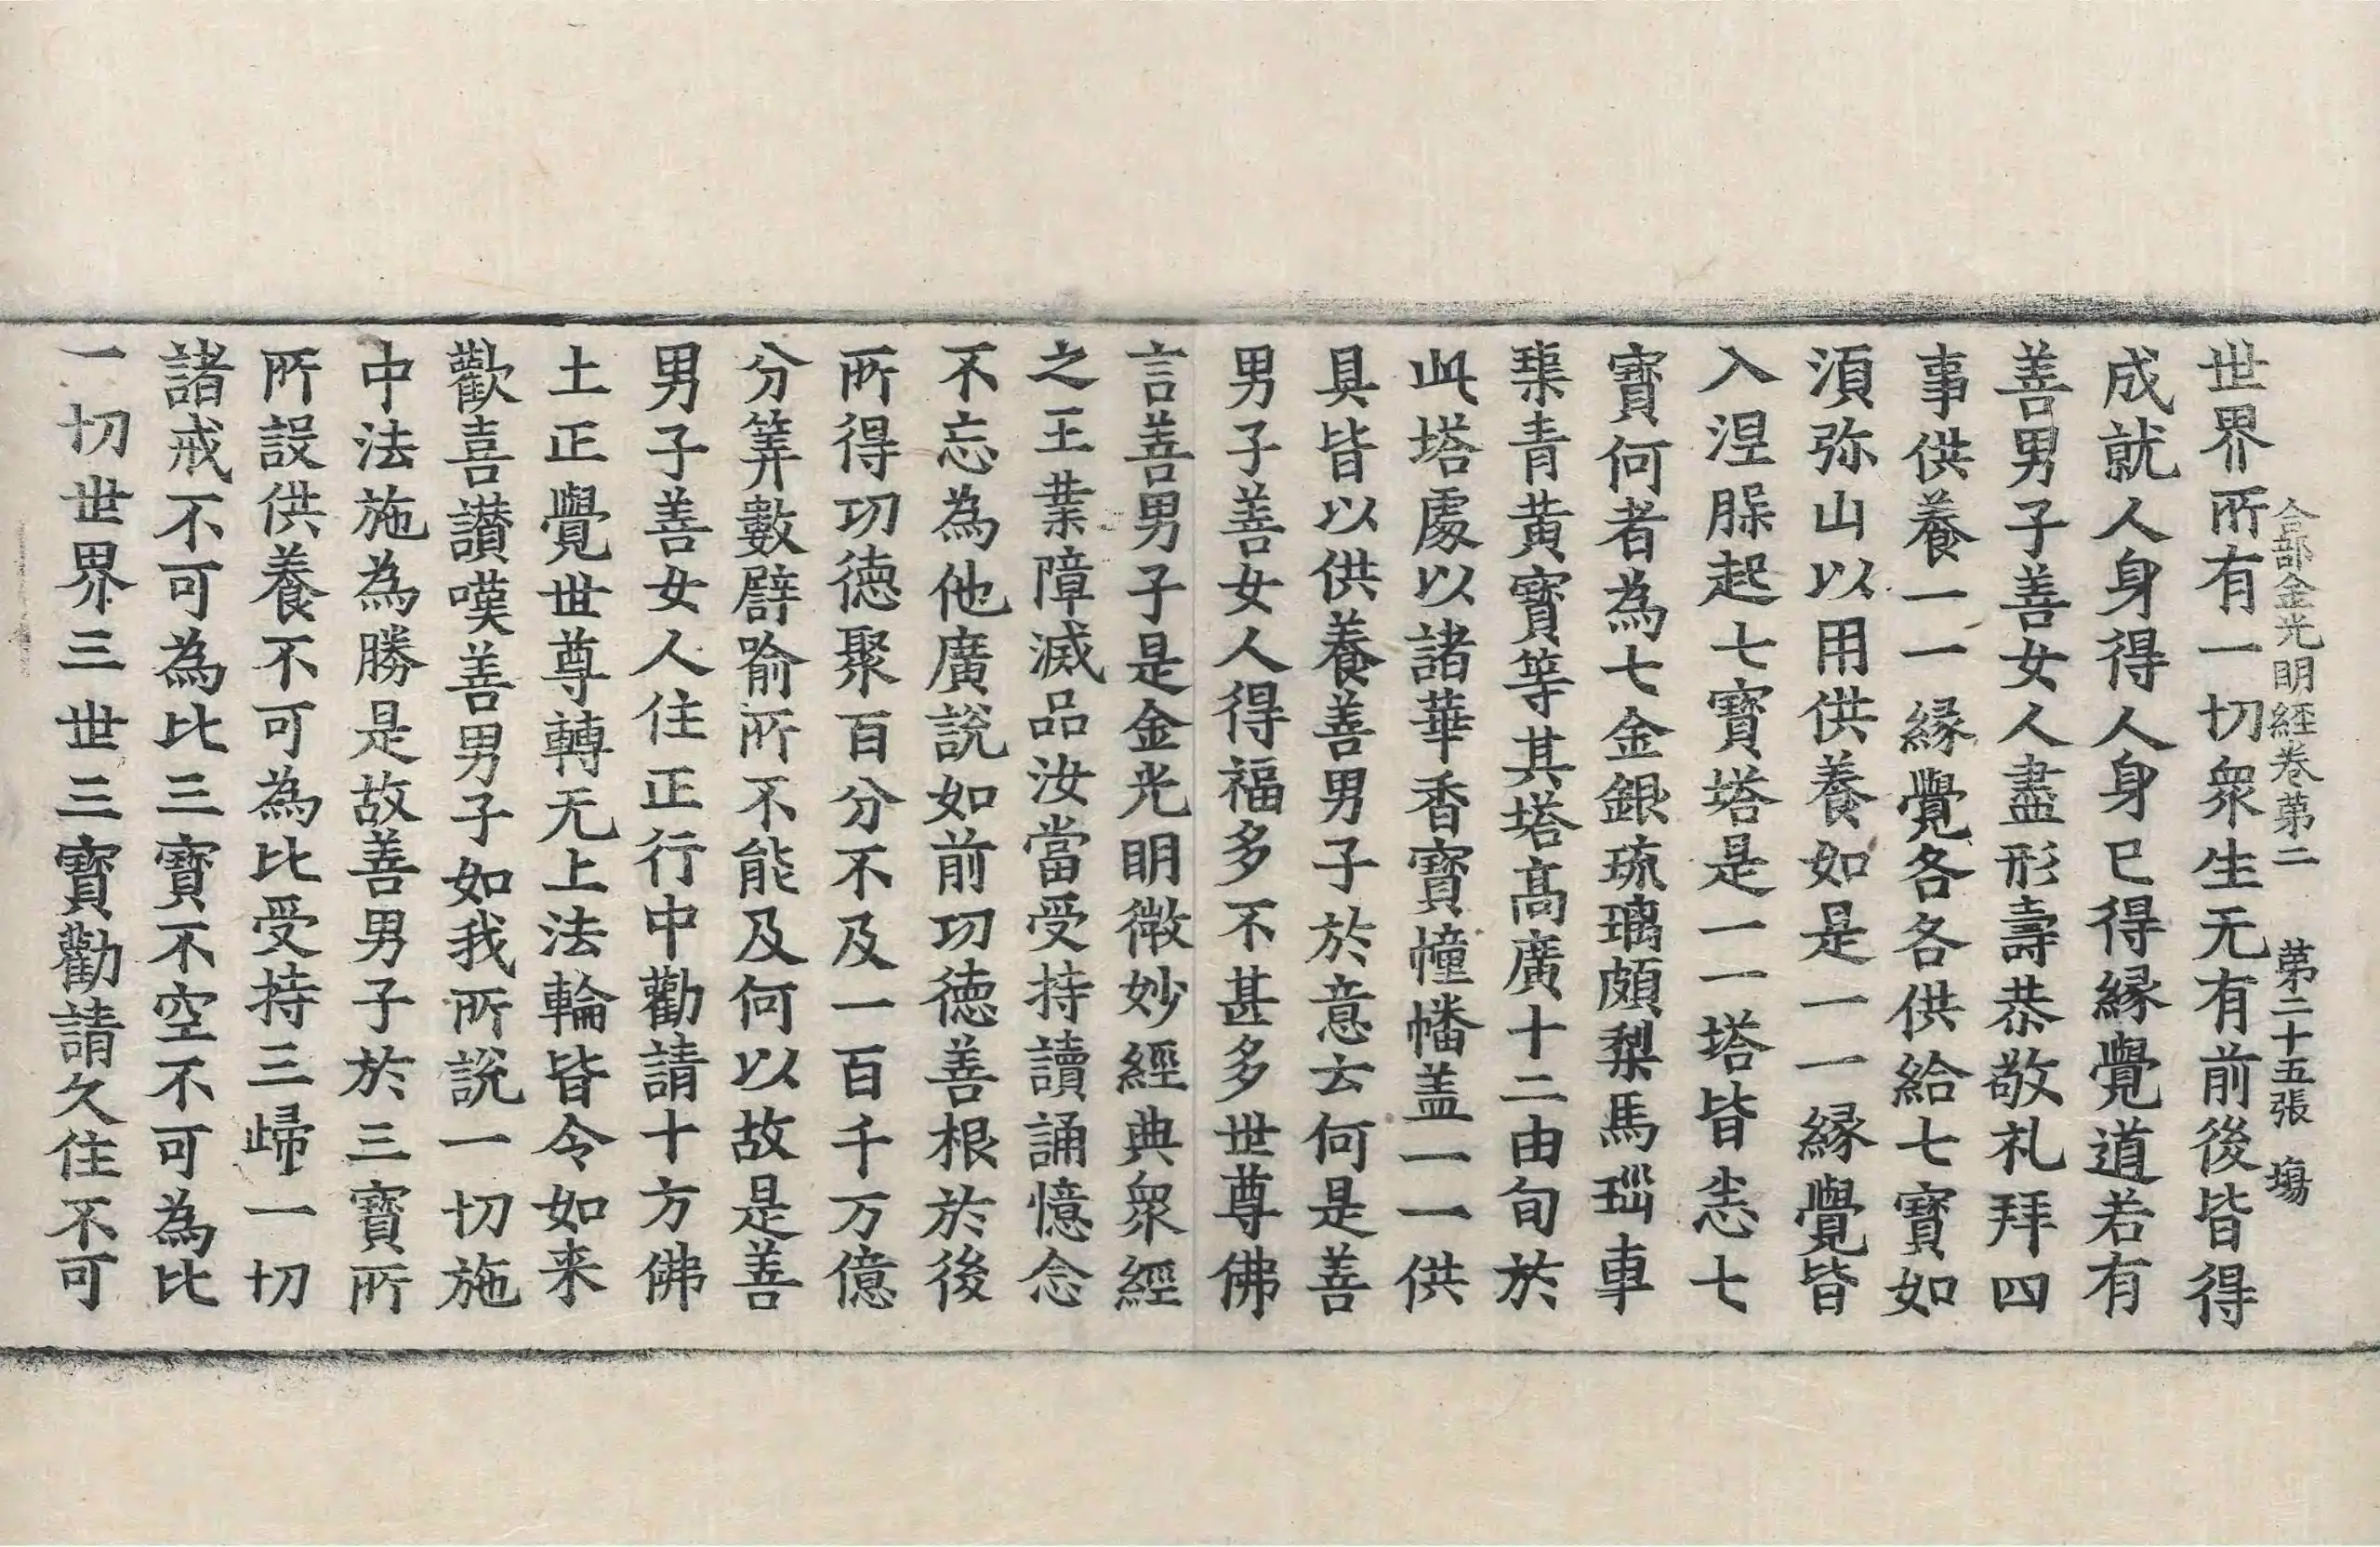 合部金光明經卷第二　第二十五張　塲
世界所有一切衆生无有前後皆得
成就人身得人身已得緣覺道若有
善男子善女人盡形壽恭敬礼拜四
事供養一一緣覺各各供給七寳如
湏弥山以用供養如是一一緣覺皆
入涅槃起七寳塔是一一塔皆悉七
寳何者為七金銀琉璃頗梨馬瑙車
𤦲青黄寳等其塔髙廣十二由旬於
此塔處以諸華香寳幢幡盖一一供
具皆以供養善男子於意云何是善
男子善女人得福多不甚多世尊佛
言善男子是金光明微妙經典衆經
之王業障滅品汝當受持讀誦憶念
不忘為他廣說如前功德善根於後
所得功德聚百分不及一百千万億
分筭數譬喻所不能及何以故是善
男子善女人住正行中勸請十方佛
土正覺世尊轉无上法輪皆令如来
歡喜讃嘆善男子如我所說一切施
中法施為勝是故善男子於三寳所
所設供養不可為比受持三歸一切
諸戒不可為比三寳不空不可為比
一切世界三世三寳勸請久住不可